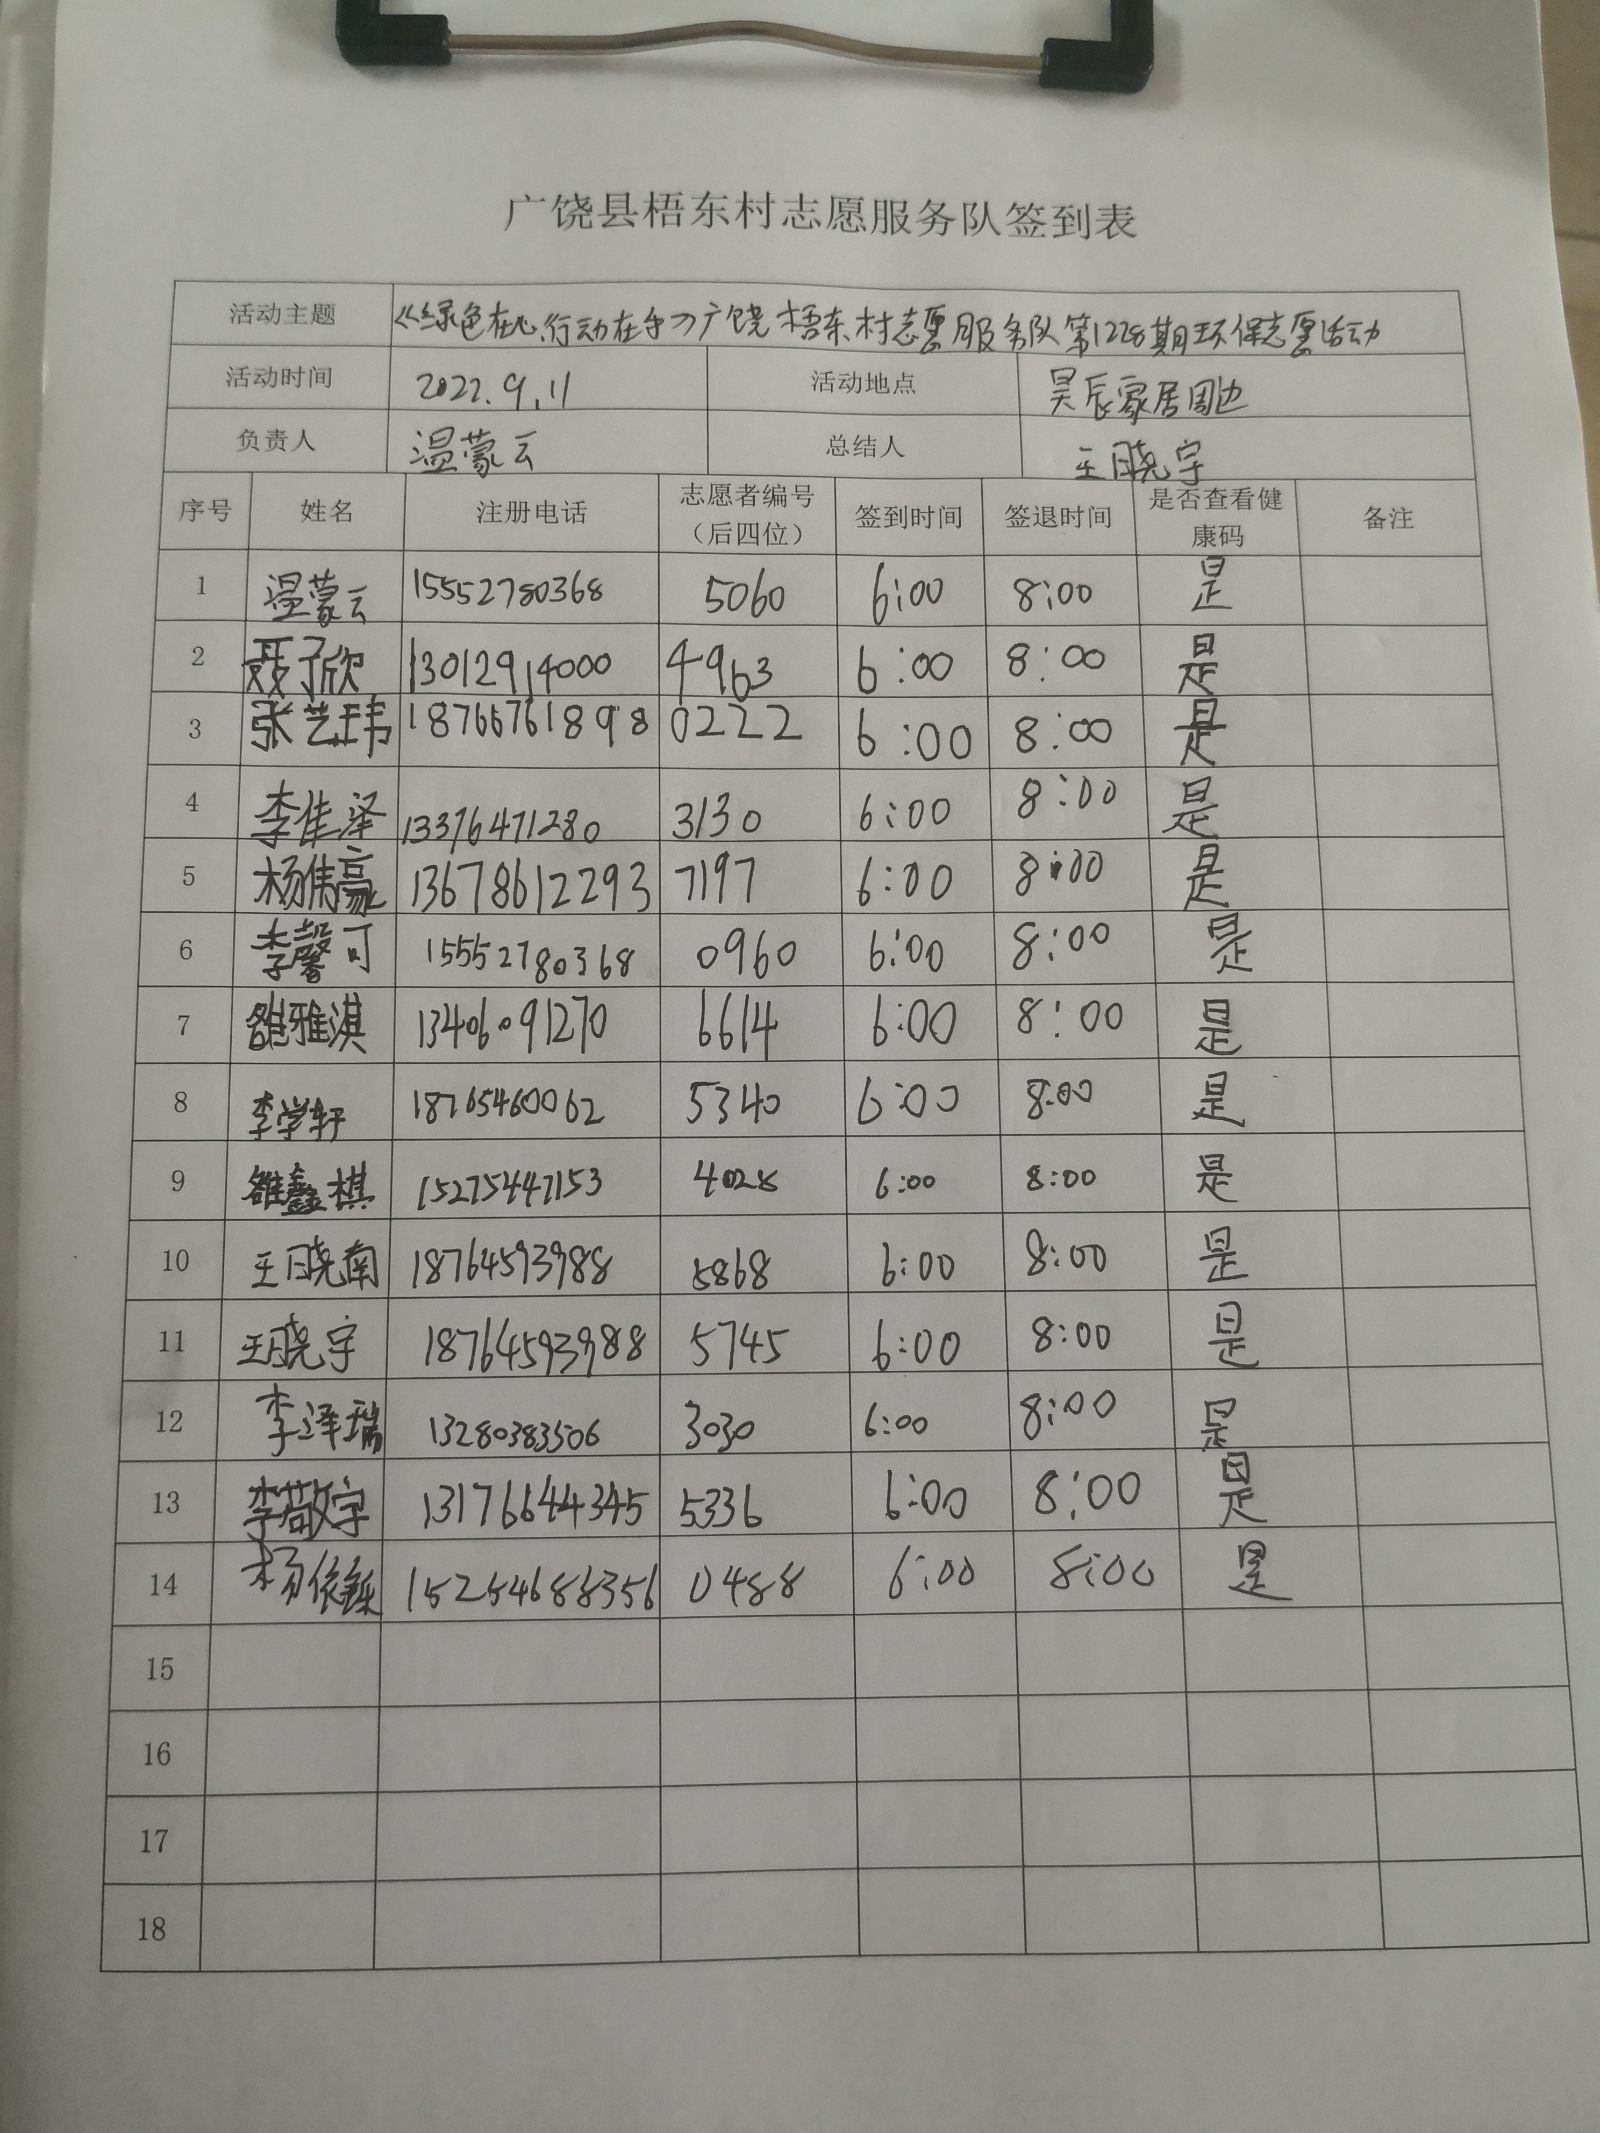 广饶县梧东村志愿服务队签到表
活动主题 《绿色在心,行动在手》广饶梧东村志愿服务队第1228期环保志愿活动
活动时间 2022.9.11 活动地点 昊辰家居周边
负责人 温蒙云 总结人 王晓宇
序号 姓名 注册电话 志愿者编号（后四位） 签到时间 签退时间 是否查看健康码 备注
1 温蒙云 15552780368 5060 6:00 8:00 是
2 聂子欣 13012914000 4963 6:00 8:00 是
3 张艺玮 18766761898 0222 6:00 8:00 是
4 李佳泽 13376471280 3130 6:00 8:00 是
5 杨隽豪 13678612293 7197 6:00 8:00 是
6 李馨可 15552780368 0960 6:00 8:00 是
7 雒雅淇 13406091270 6614 6:00 8:00 是
8 李学轩 18765460062 5340 6:00 8:00 是
9 雒鑫棋 15275447153 4028 6:00 8:00 是
10 王晓南 18764593988 5868 6:00 8:00 是
11 王晓宇 18764593988 5745 6:00 8:00 是
12 李泽瑞 13280383506 3030 6:00 8:00 是
13 李敬宇 13176644345 5336 6:00 8:00 是
14 杨依铄 15254688356 0488 6:00 8:00 是
15
16
17
18